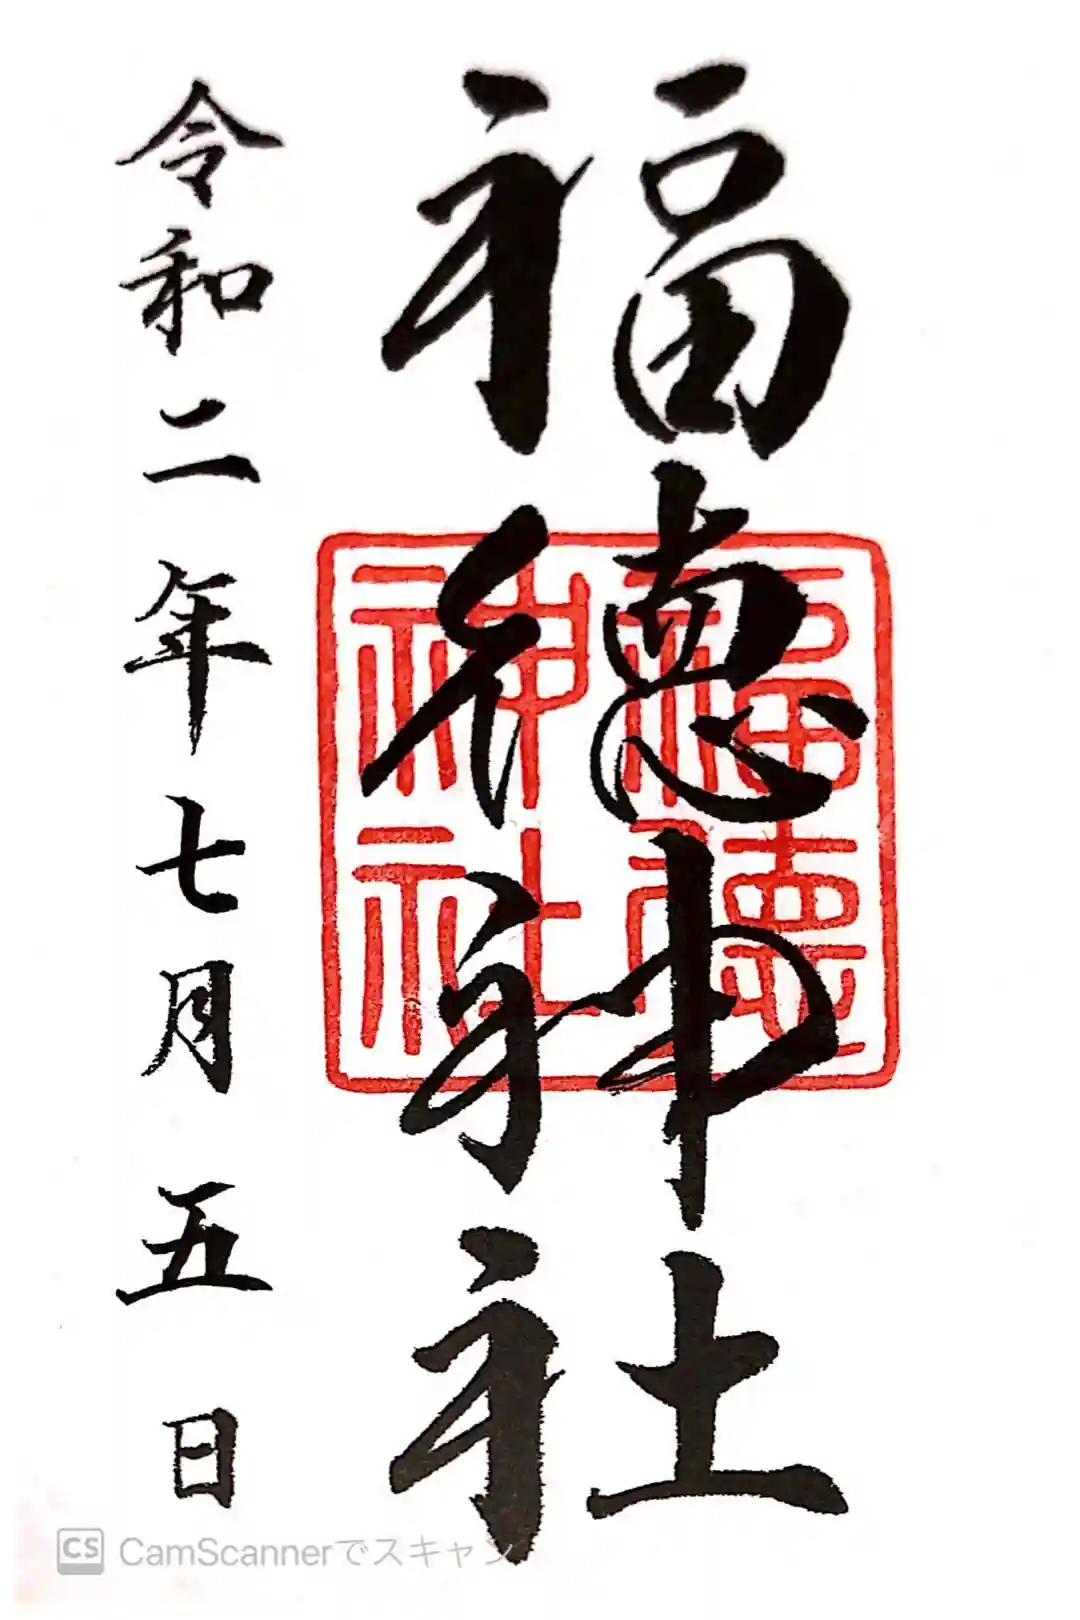 福徳神社
福徳
神社
令和二年七月五日
CS CamScannerでスキャン